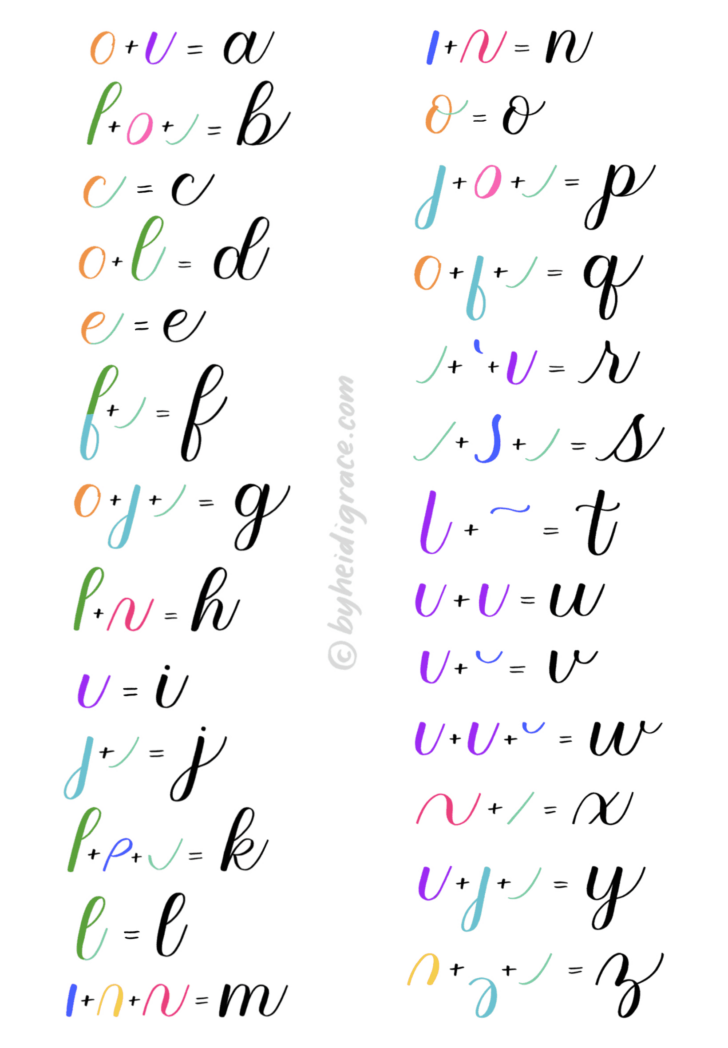 o + u = a
l + o + = b
c = c
o + l = d
e = e
f + = f
o + j + = g
l + n = h
u = i
j + = j
l + + = k
l = l
ı + n + n = m
ı + n = n
o = o
j + o + = p
o + f + = q
+ + u = r
+ + = s
l + ~ = t
u + u = u
u + = v
u + u + = w
n + / = x
u + j + = y
n + + = z
© byheidigrace.com